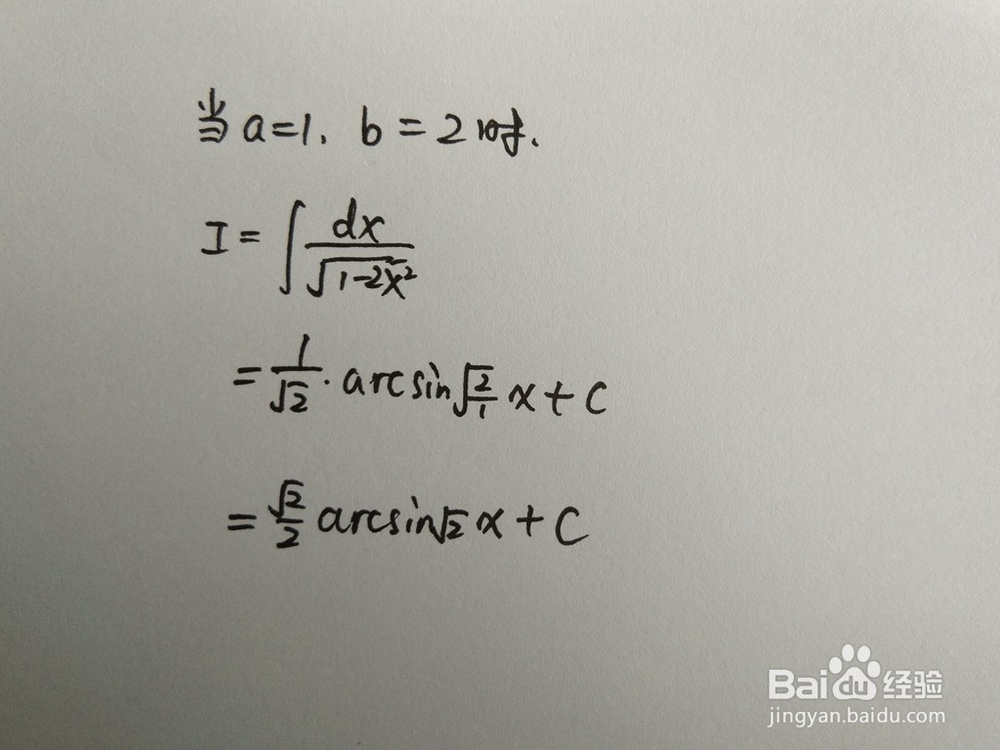 当a=1, b=2时.
I=∫dx/√(1-2x²)
=1/√2·arcsin√(2/1) x+C
=√2/2 arcsin√2 x+C
Baidu经验
jingyan.baidu.com